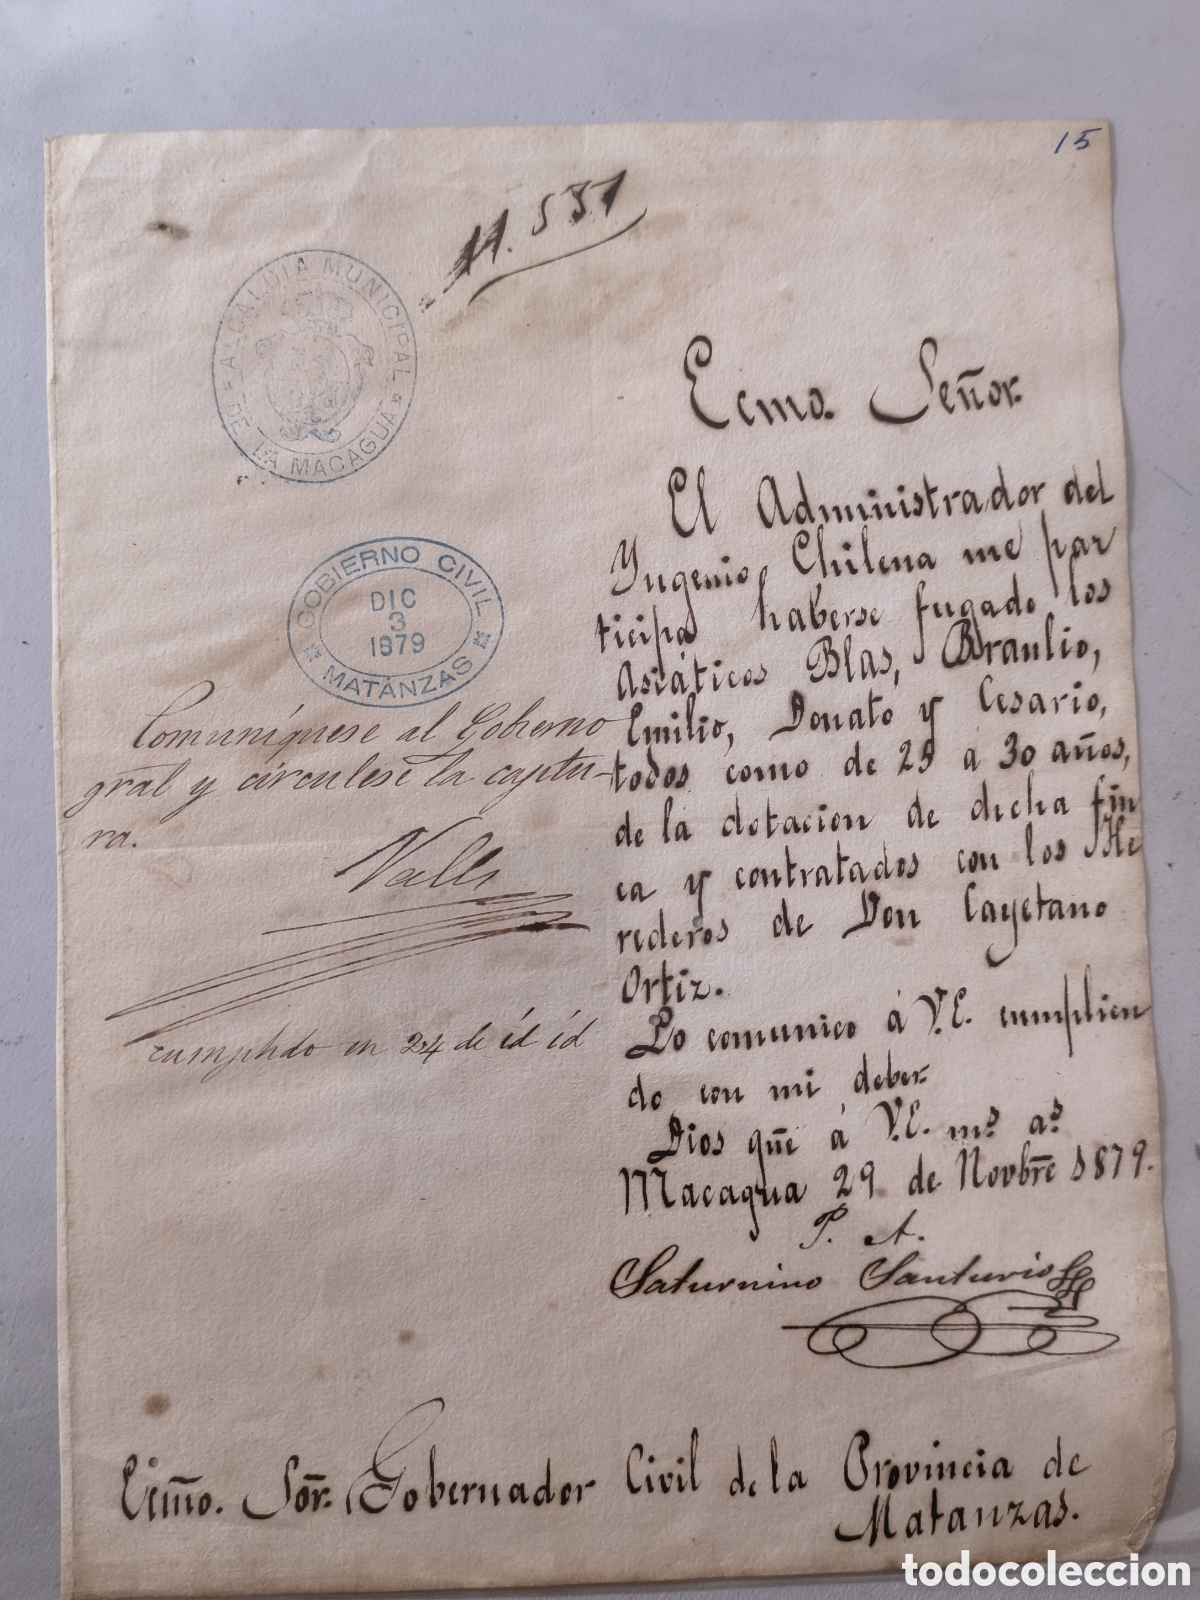 15
11.551
ALCALDIA MUNICIPAL
* DE LA MACAGUA *
GOBIERNO CIVIL
DIC
3
1879
* MATANZAS *
Comuníquese al Gobierno
gral y circulese la captu-
ra.
Valls
cumplido en 24 de id id
Ecmo. Señor.
El Administrador del
Yngenio Chilena me par
ticipa haberse fugado los
Asiáticos Blas, Braulio,
Emilio, Donato y Cesario,
todos como de 25 a 30 años,
de la dotacion de dicha fin
ca y contratados con los He
rederos de Don Cayetano
Ortiz.
Lo comunico á V.E. cumplien
do con mi deber.
Dios güe á V.E. ms. as.
Macagua 29 de Novbre 1879.
P. A.
Saturnino Santurio
Ecmo. Sor. Gobernador Civil de la Provincia de
Matanzas.
todocoleccion